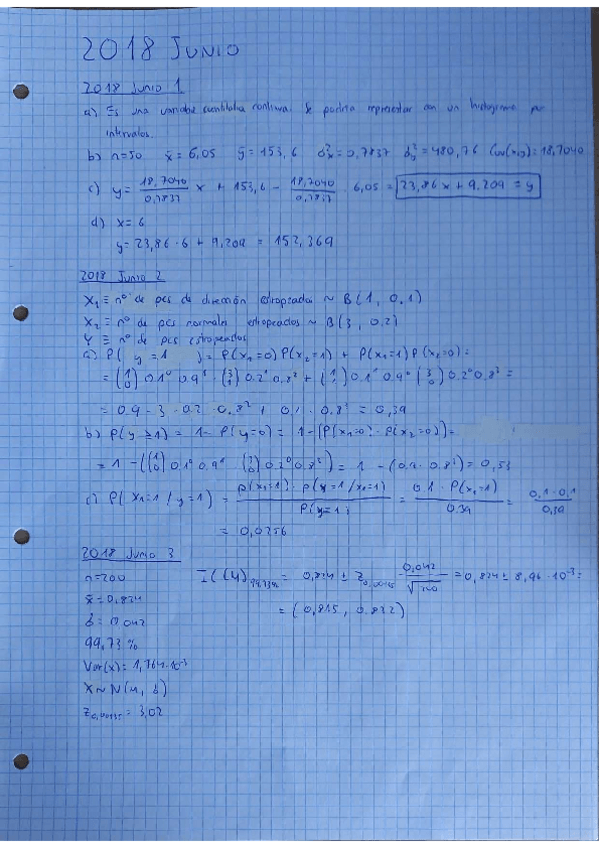 2018 JUNIO
2018 Junio 1
a) Es una variable cuantitativa continua. Se podría representar con un histograma por
intervalos.
b) n=50 x̄ = 6,05 ȳ = 153,6 σ²x = 0,7837 σ²y = 480,76 Cov(x,y) = 18,7040
c) y = 18,7040/0,7837 x + 153,6 - 18,7040/0,7837 · 6,05 = 23,86 x + 9.209 = y
d) x = 6
y = 23,86 · 6 + 9,209 = 152,369
2018 Junio 2
X₁ ≡ nº de pcs de dirección estropeados ~ B(1, 0.1)
X₂ ≡ nº de pcs normales estropeados ~ B(3, 0.2)
Y ≡ nº de pcs estropeados
a) P( y = 1 ) = P(x₁=0) P(x₂=1) + P(x₁=1) P(x₂=0) =
= (1 0) 0.1⁰ 0.9¹ · (3 1) 0.2¹ 0.8² + (1 1) 0.1¹ 0.9⁰ (3 0) 0.2⁰ 0.8³ =
= 0.9 · 3 · 0.2 · 0.8² + 0.1 · 0.8³ = 0,39
b) P(y ≥ 1) = 1 - P(y=0) = 1 - (P(x₁=0) · P(x₂=0)) =
= 1 - ((1 0) 0.1⁰ 0.9¹ (3 0) 0.2⁰ 0.8³) = 1 - (0.9 · 0.8³) = 0,53
c) P( x₁=1 / y=1) = P(x₁=1) · P(y=1/x₁=1) / P(y=1) = 0.1 · P(x₁=1) / 0.39 = 0.1 · 0.1 / 0,39
= 0,0256
2018 Junio 3
n=200 IC(μ)99,73% = 0,824 ± z0,00135 · 0,042/√200 = 0,824 ± 8,96 · 10⁻³ =
x̄ = 0,824 = (0,815, 0.832)
σ̂ = 0.042
99,73 %
Var(x) = 1,764·10⁻³
X ~ N(μ, σ)
z0,00135 = 3,02